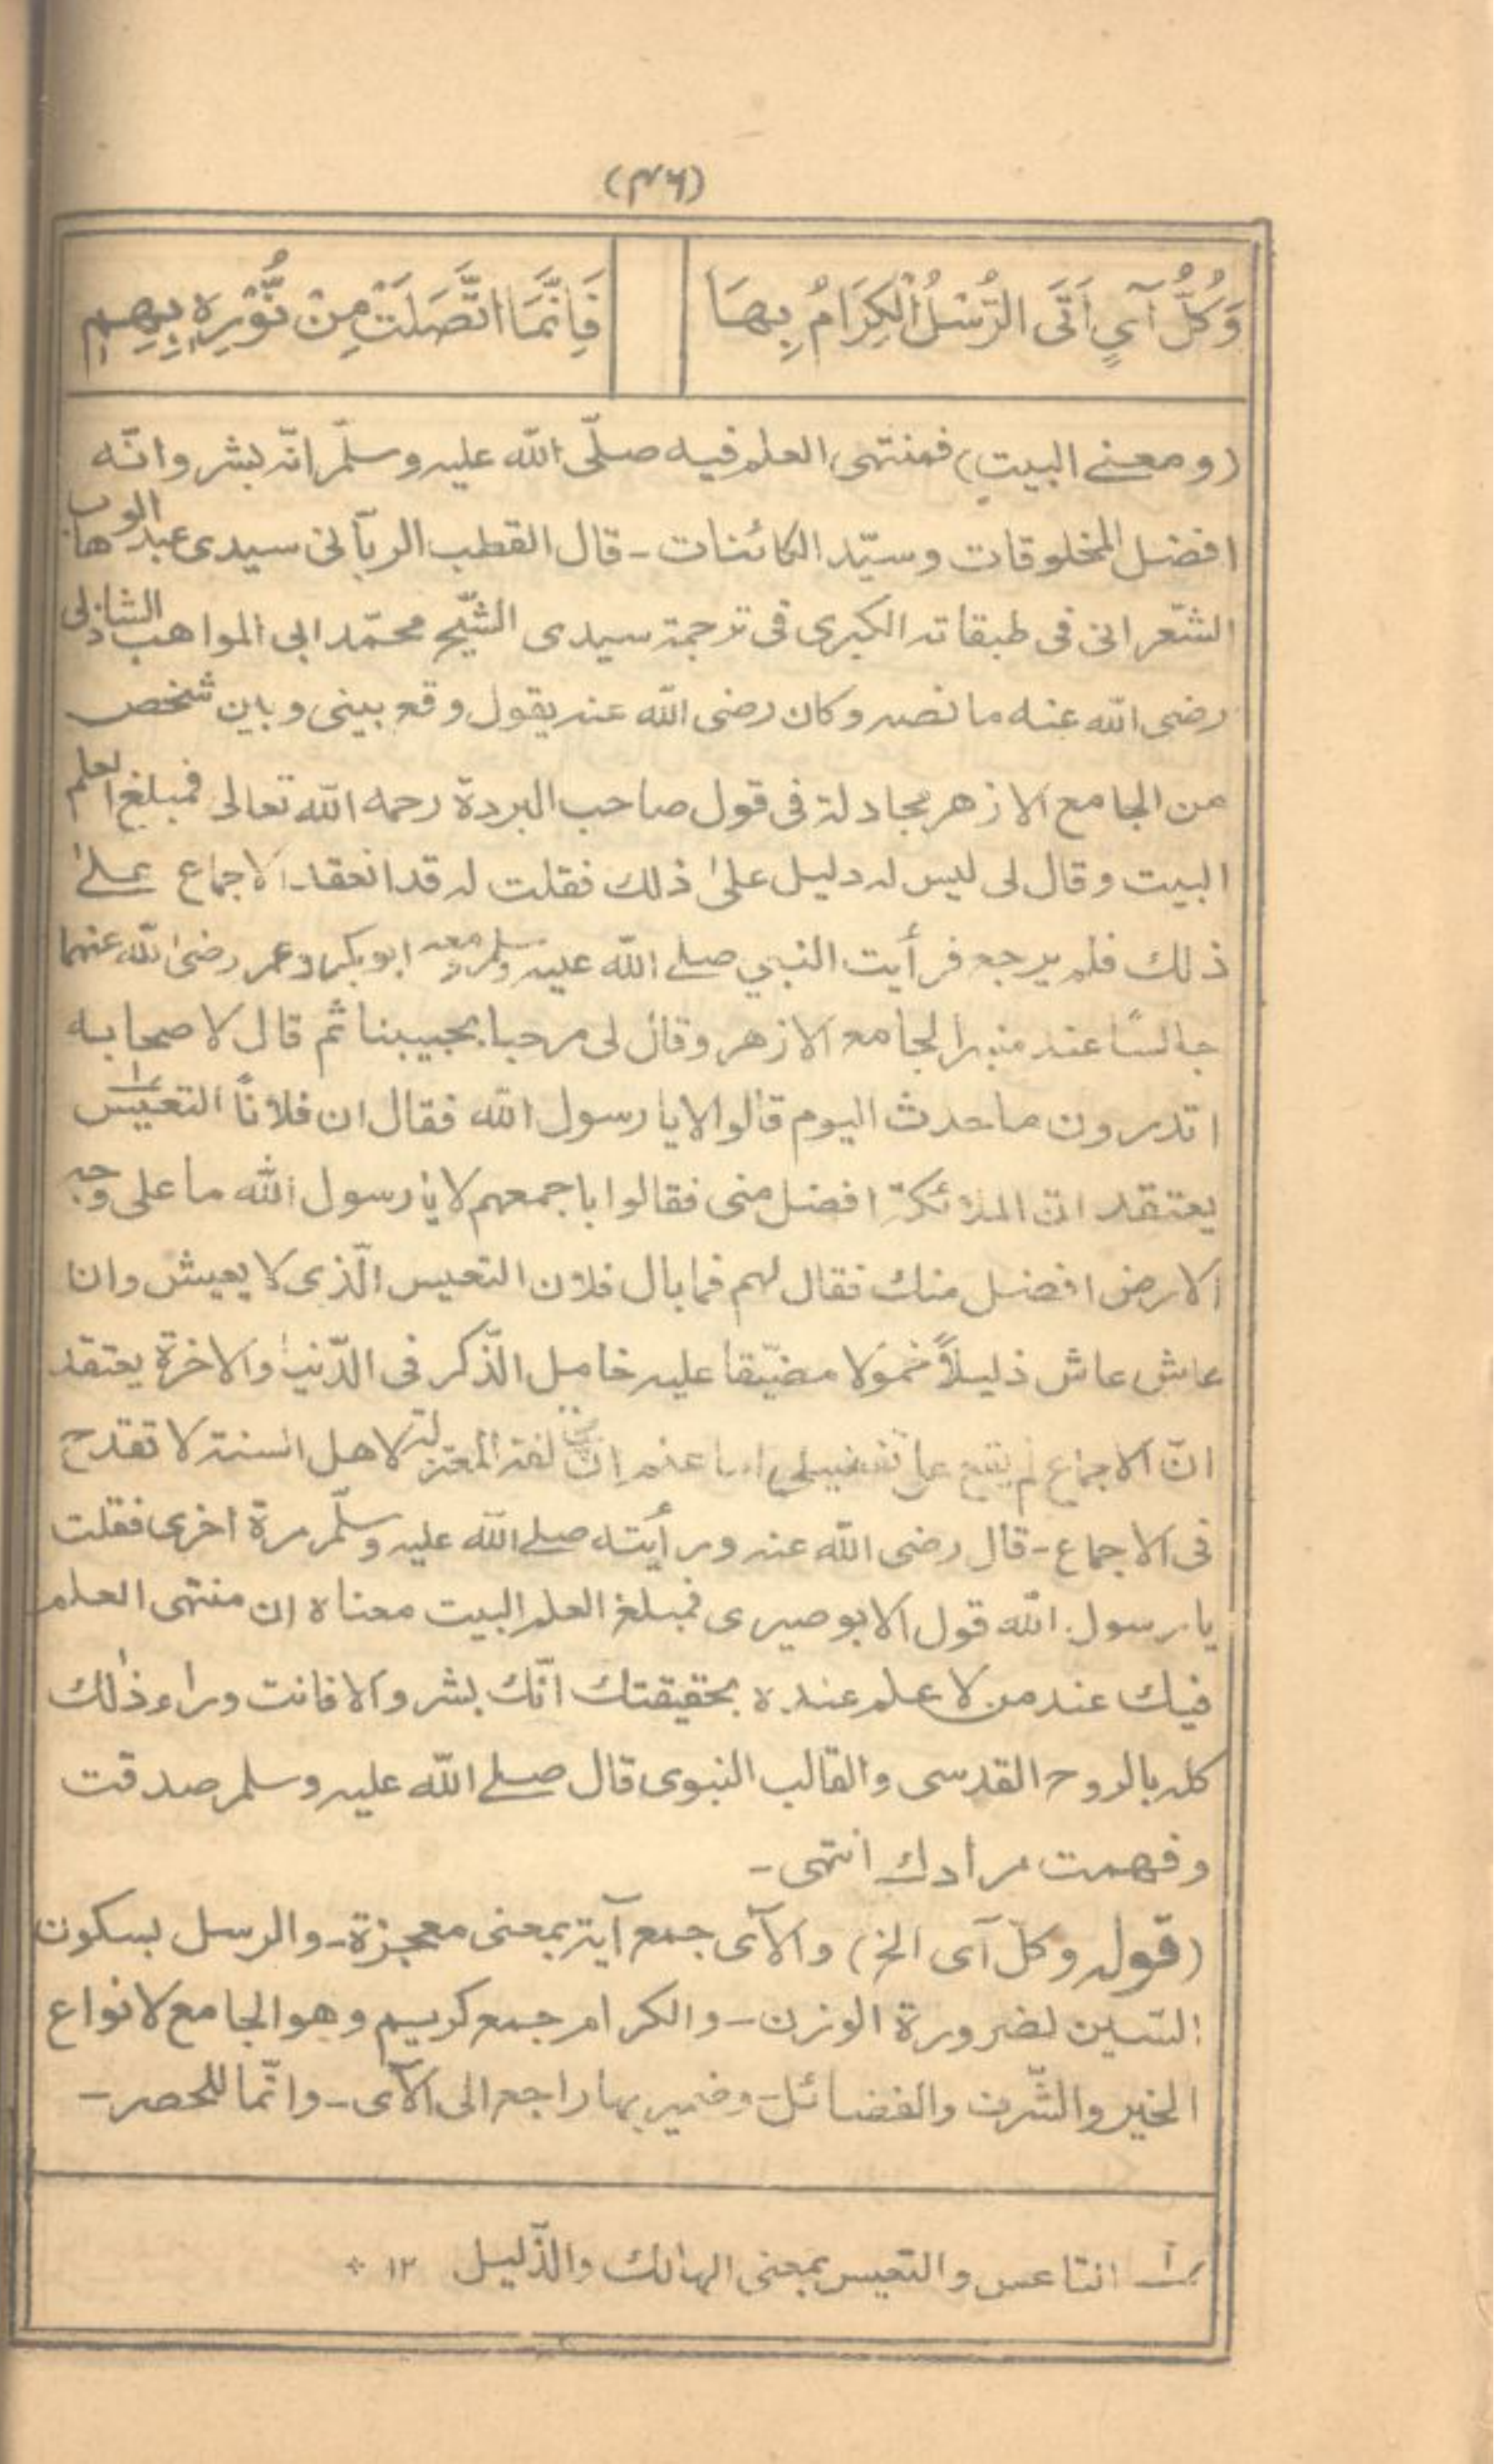 (۴۶)
وَكُلُّ آيٍ اَتَى الرُّسْلُ الْكِرَامُ بِهَا
فَاِنَّمَا اتَّصَلَتْ مِنْ نُّوْرِهٖ بِهِمِ
(ومعنے البيت) فمنتهى العلم فيه صلّى الله عليه وسلّم انّه بشر وانّه
افضل المخلوقات وسيّد الكائنات - قال القطب الربّانى سيدى عبد الوهاب
الشّعرانى فى طبقاته الكبرى فى ترجمة سيدى الشّيخ محمّد ابى المواهب الشاذلى
رضى الله عنه ما نصه وكان رضى الله عنه يقول وقع بينى وبين شخص
من الجامع الازهر مجادلة فى قول صاحب البردة رحمه الله تعالى فمبلغ العلم
البيت وقال لى ليس له دليل علىٰ ذلك فقلت له قد انعقد الاجماع علےٰ
ذلك فلم يرجع فرأيت النبي صلے الله عليه وسلم ومعه ابوبكر وعمر رضى الله عنهما
جالسًا عند منبر الجامع الازهر وقال لى مرحبا بحبيبنا ثم قال لاصحابه
اتدرون ما حدث اليوم قالوا لا يا رسول الله فقال ان فلانًا التعيس ؂۱
يعتقد انّ الملائكة افضل منى فقالوا باجمعهم لا يا رسول الله ما على وجه
الارض افضل منك فقال لهم فما بال فلان التعيس الّذى لا يعيش وان
عاش عاش ذليلاً خمولا مضيّقا عليه خامل الذّكر فى الدّنيا والاخرة يعتقد
انّ الاجماع لم يقع على تفضيلى اما علم ان مخالفة المعتزلة لاهل السنة لا تقدح
فى الاجماع - قال رضى الله عنه ورأيته صلے الله عليه وسلّم مرة اخرى فقلت
يا رسول الله قول الابوصيرى فمبلغ العلم البيت معناه ان منتهى العلم
فيك عند من لا علم عنده بحقيقتك انّك بشر والا فانت وراء ذٰلك
كله بالروح القدسى والقالب النبوى قال صلے الله عليه وسلم صدقت
وفهمت مرادك انتهى -
(قوله وكلّ آى الخ) والآى جمع آية بمعنى معجزة - والرسل بسكون
السّين لضرورة الوزن - والكرام جمع كريم وهو الجامع لانواع
الخير والشّرف والفضائل - وضمير بها راجع الى الآى - وانّما للحصر -
؂۱ التاعس والتعيس بمعنى الهالك والذّليل ۱۲ ٭